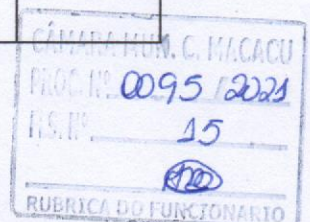 CÂMARA MUN. C. MACACU
PROC. Nº 0095 / 2021
FLS. Nº 15
RUBRICA DO FUNCIONARIO